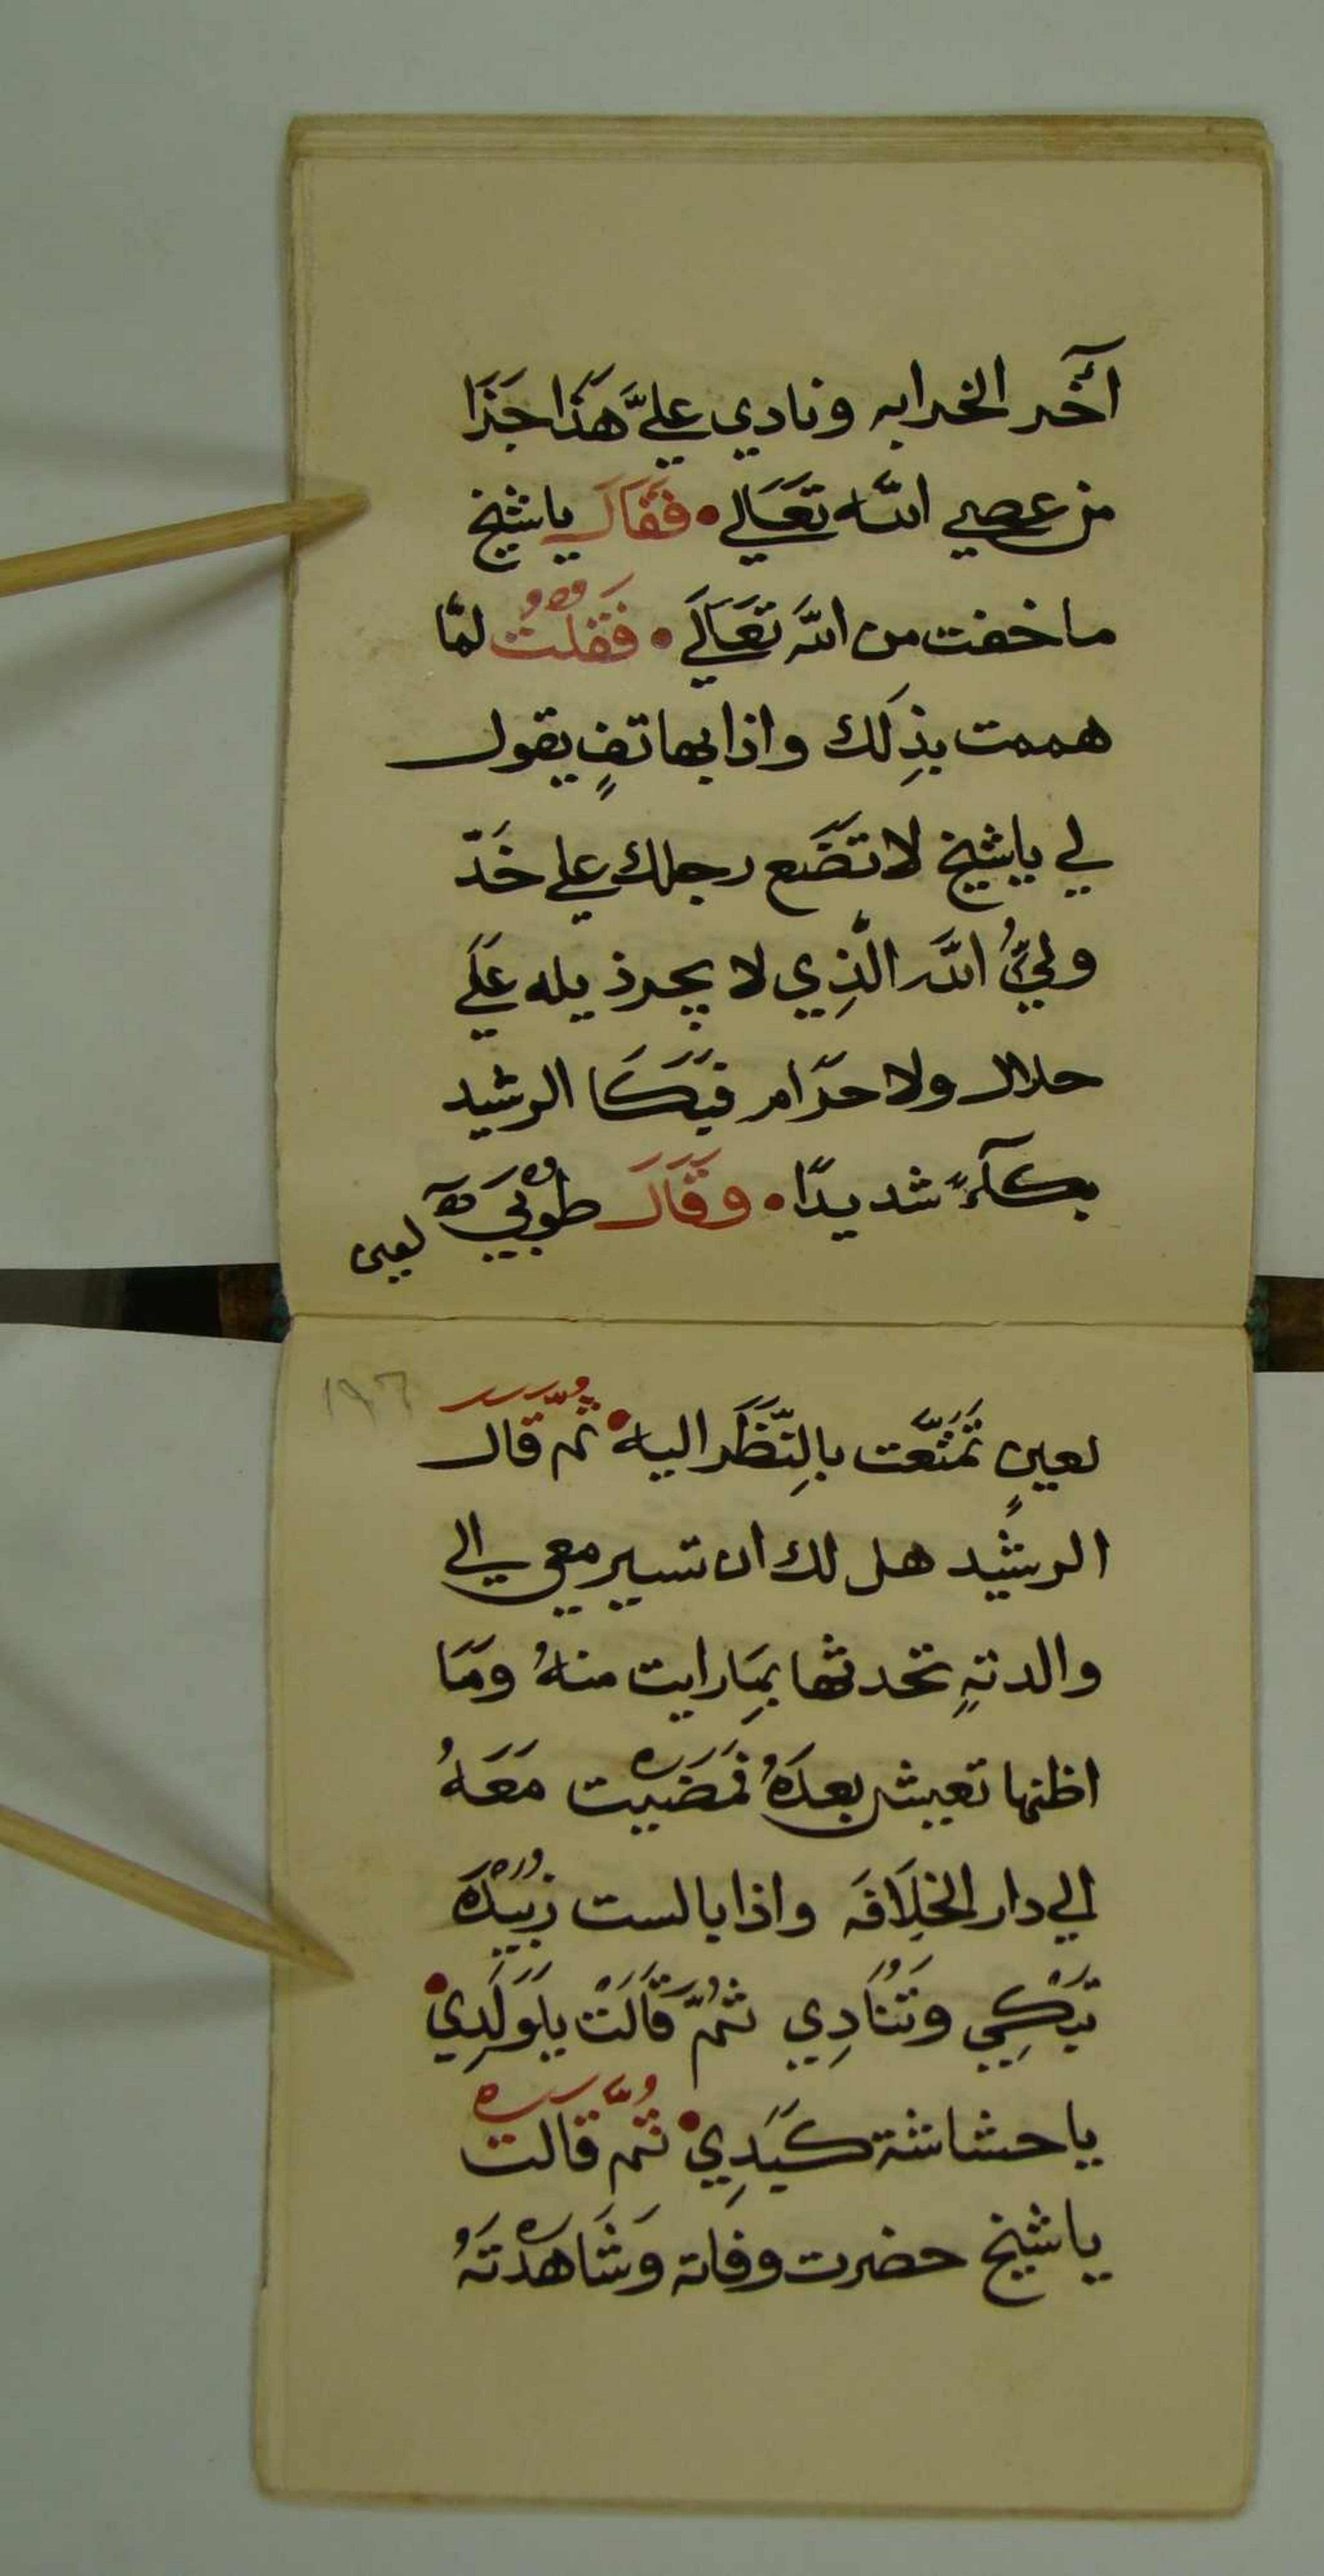 آخَر الخرابه ونادي عليَّ هَذَا جَزَا
من عصي الله تَعَالي • فَقَالَ ياشيخ
ما خفت من الله تَعَالَي • فَقُلْتُ لمّا
هممت بذِلَك واذا بهاتفٍ يقول
لي ياشيخ لا تَضَع رجلك علي خَدّ
وليُّ الله الَّذِي لا يجرذيله عَلَي
حلال ولا حَرَام فَبَكَا الرشيد
بكآءً شديدًا • وَقَالَ طُوْبَي
لعين
١٩٦
لعينٍ تَمَتَّعَت بالنَّظَر اليه • ثُمَّ قَالَ
الرشيد هل لك ان تسير معي الي
والدتهِ تحدثها بِمَا رايت منهُ وَمَا
اظنها تعيش بعدَهُ فَمَضَيْت مَعَهُ
الي دار الخِلَافَه واذا بالست زُبَيْدَه
تَبْكِي وَتُنَادِي ثُمَّ قَالَتْ يَاوَلَدِي •
ياحشاشة كَبَدِي • ثُمَّ قَالَتْ
ياشيخ حضرت وفاته وَشَاهَدْتَهُ